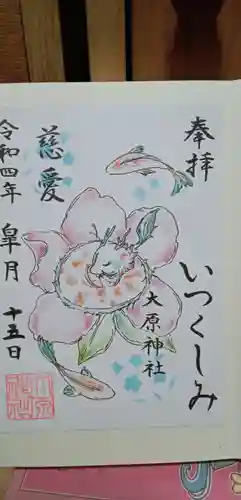 奉拝
いつくしみ
大原神社
慈愛
皐月 十五日
令和四年